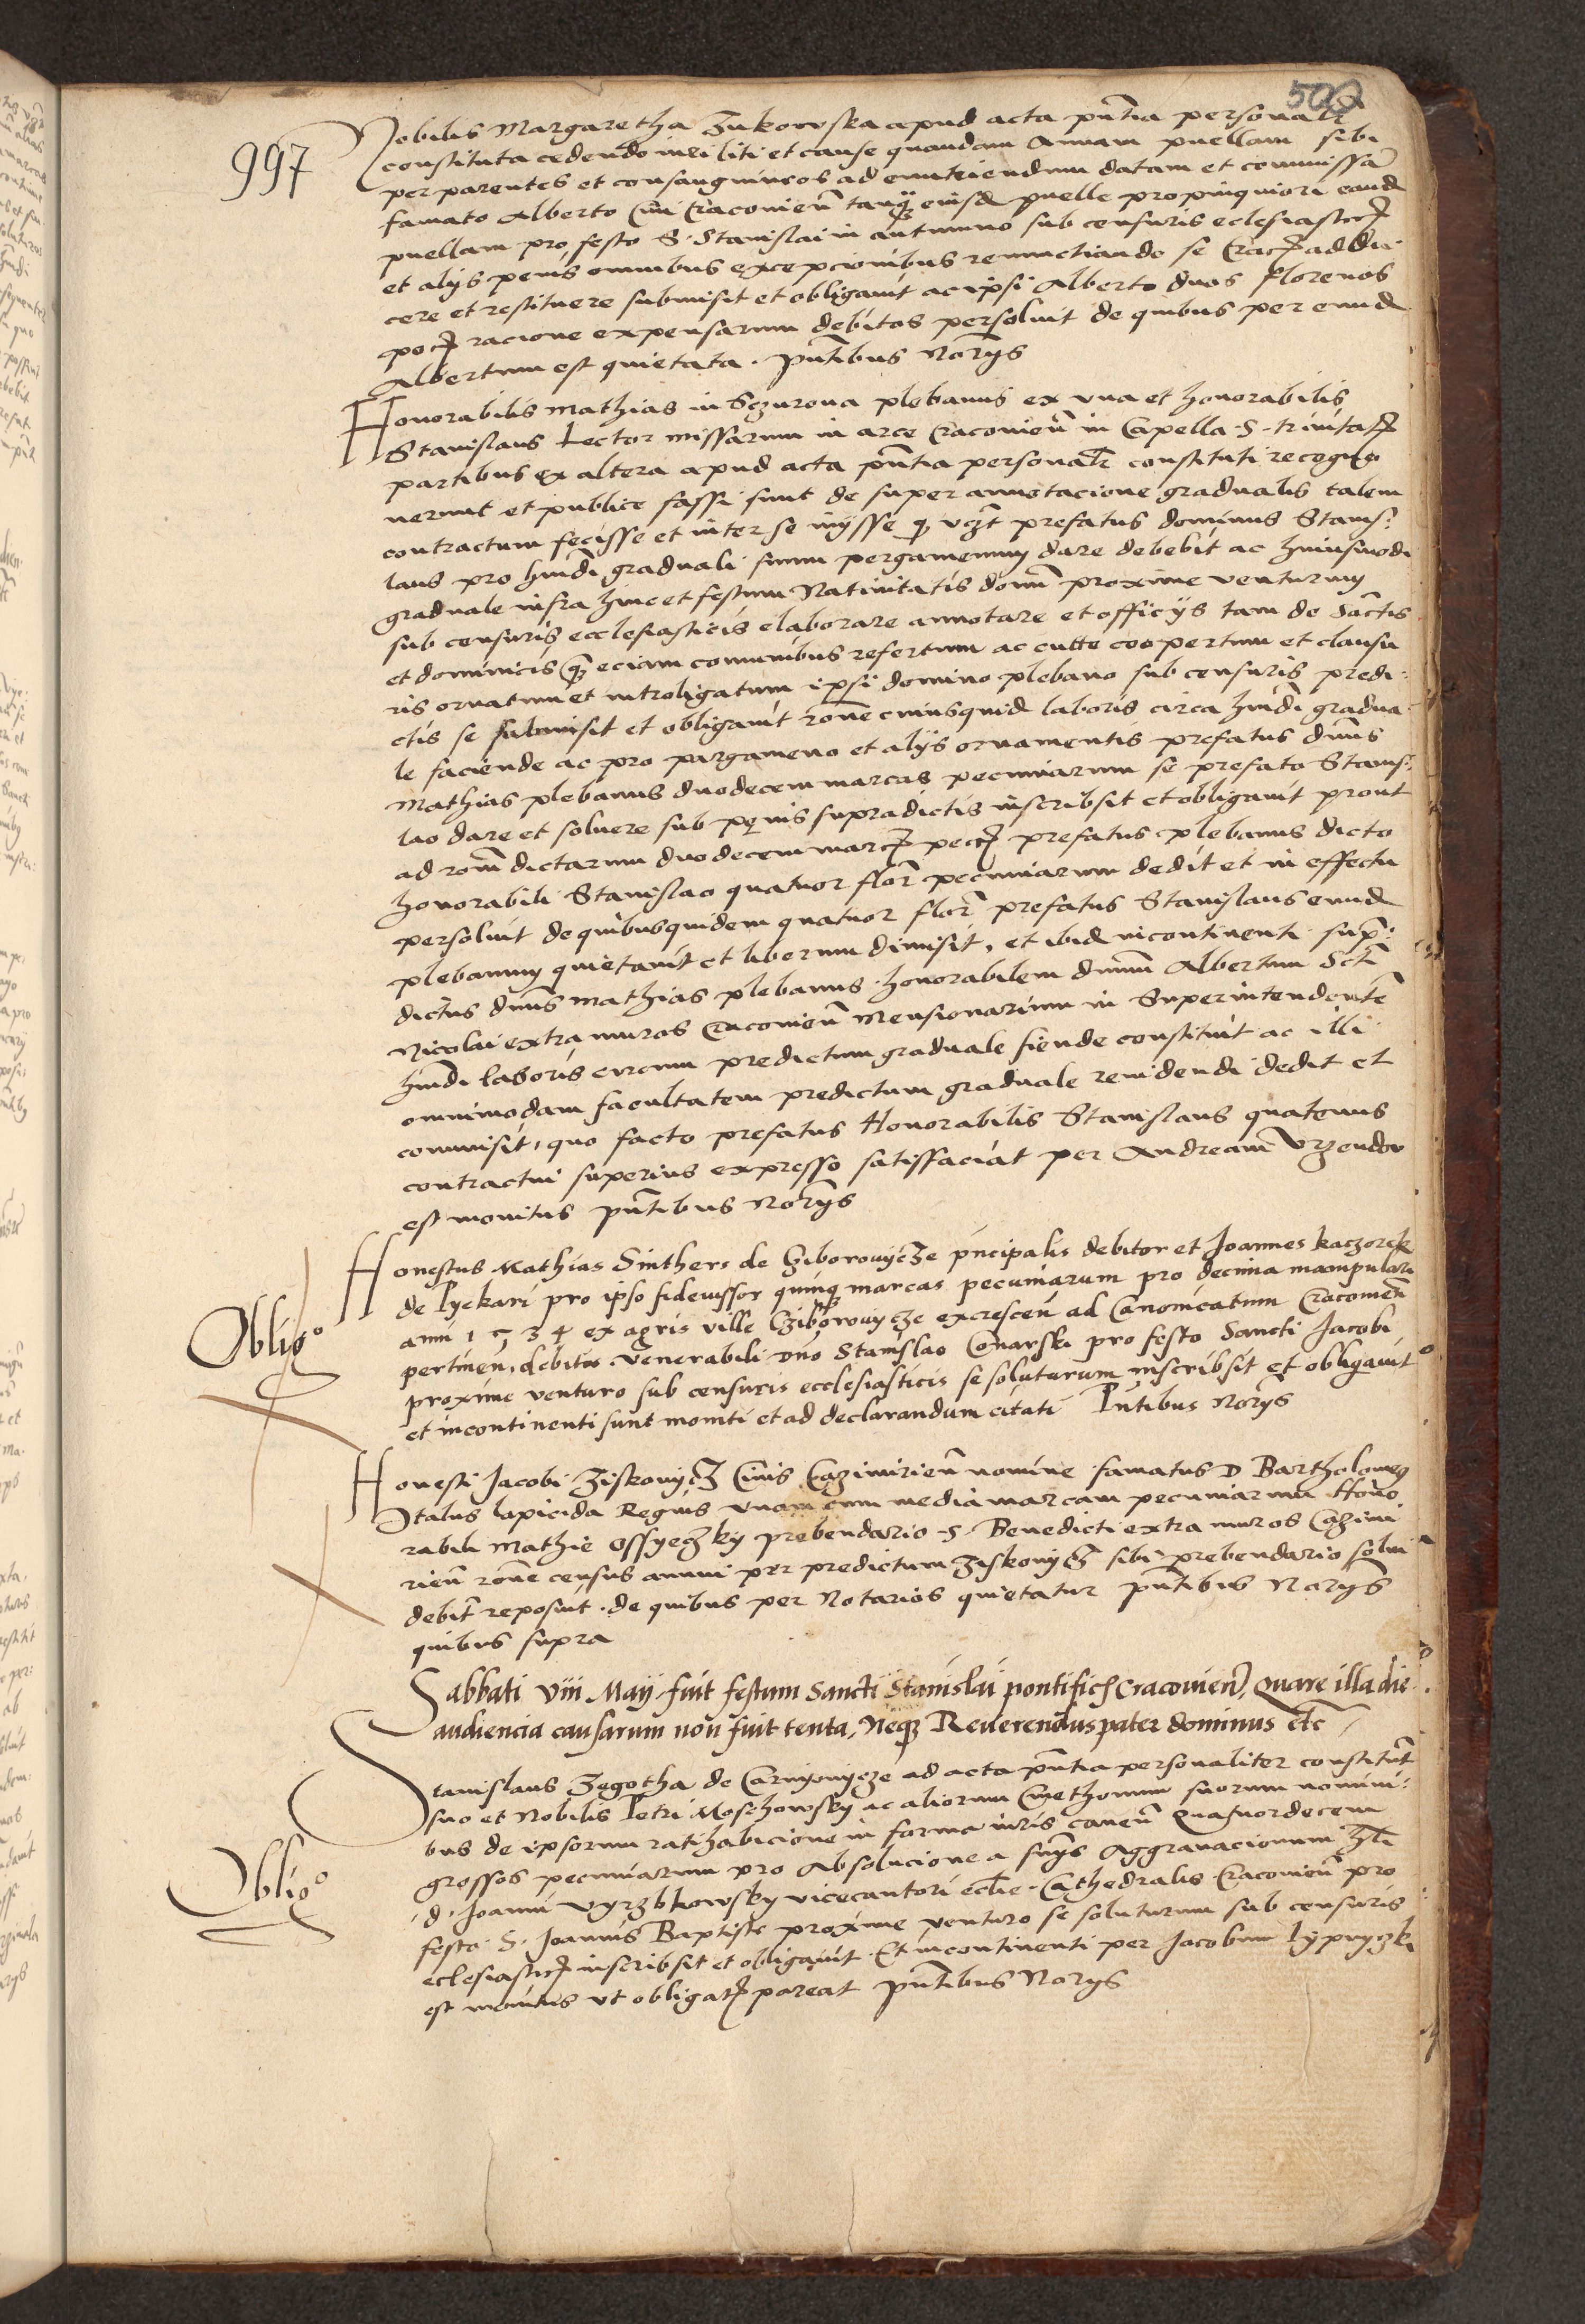 500
997
Nobilis Margaretha Zukowska apud acta pntia personalr
constituta cedendo inei liti et cause quandam Annam puellam sibi
per parentes et consanguineos ad enutriendum datam et commissã
famato Alberto Civi Cracovień tanqz eiusd puelle propinquiori eand
puellam pro festo S. Stanislai in autumno sub censuris ecclesiastic
et alys penis omnibus excepcionibus renunctiando se Crac addu
cere et restituere submisit et obligavit ac ipsi Alberto duos florenos
pec racione expensarum debitos persoluit de quibus per eund
Albertum est quietata. pntibus Norys
Honorabilis Mathias in Sczurowa plebanus ex una et honorabilis
Stanislaus Lector missarum in arce Cracovień in Capella S. trinitat
partibus ex altera apud acta pntia personalr constituti recogno
uerunt et publice fassi sunt de super annotacione gradualis talem
contractum fecisse et inter se inysse q vczt prefatus dominus Stanis:
laus pro hmdi graduali suum pergamenum dare debebit ac huiusmodi
graduale infra hinc et festum Natiuitatis domī proxime venturum
sub censuris ecclesiasticis elaborare annotare et officys tam de sanctis
et dominicis qz eciam comunibus refertum ac cutte coopertum et clausu
ris ornatum et introligatum ipsi domino plebano sub censuris predi:
ctis se submisit et obligauit rone cuiusquid laboris circa hmdi gradua
le faciende ac pro pargameno et alys ornamentis prefatus dnus
Mathias plebanus duodecem marcas pecuniarum se prefato Stanis:
lao dare et soluere sub penis supradictis inscribsit et obligauit prout
ad rom dictarum duodecem marc pec prefatus plebanus dicto
honorabili Stanislao quatuor flor pecuniarum dedit et in effectu
persoluit de quibusquidem quatuor flor prefatus Stanislaus eund
plebanum quietauit et liberum dimisit, et ibid incontinenti sup:
dictus dnus Mathias plebanus honorabilem dnum Albertum Scti
Nicolai extra muros Cracovień Mensionarium in Superintendentē
hmdi laboris circum predictum graduale fiende constituit ac illi
omnimodam facultatem predictum graduale reuidendi dedit et
commisit, quo facto prefatus Honorabilis Stanislaus quatenus
contractui superius expresso satisfaciat per Andream Vrzendow
est monitus pntibus Norys
Oblig°
Honestus Mathias Sinthers de Cziborouycze pncipalis debitor et Joannes kaczorek
de Pyekari pro ipso fideiussor quinqz marcas pecuniarum pro decima manipulari
anni 1534 ex agris ville Cziborowycze excrescen ad Canonicatum Cracovień
pertinen. debitas venerabili Dno Stanislao Conarski pro festo Sancti Jacobi
proxime venturo sub censuris ecclesiasticis se soluturum inscribsit et obligauit
et incontinenti sunt moniti et ad declarandum citati Pntibus Norys
Honesti Jacobi Ziskowycz Civis Cazimirień nomine famatus D Bartholomeg
Italus lapicida Regius unam cum media marcam pecuniarum Hono
rabili Mathie Ossyeczky prebendario S. Benedicti extra muros Cazimi
rień rone census annui per predictum Ziskowycz sibi prebendario solui
debit reposuit. de quibus per Notarios quietatur pntibus Norys
quibus supra
Sabbati viii Maij fuit festum Sancti Stanislai pontificis Cracovień, Quare illa die
audiencia causarum non fuit tenta, Neqz Reuerendus pater dominus etc
Oblig°
Stanislaus Zegotha de Carnyowycze ad acta pntia personaliter constitut
suo et Nobilis Petri Moschowsky ac aliorum Cmethonum suorum nomini:
bus de ipsorum ratihabicione in forma iuris caueň Quatuordecem
grossos pecuniarum pro Absolucione a sniys Aggrauacionum hli
d. Joanni Vyrzbkowsky vicecantori eclie Cathedralis Cracovień pro
festo S. Joannis Baptiste proxime venturo se soluturum sub censuris
ecclesiastic inscribsit et obligauit. Et incontinenti per Jacobum Lypnyczki
est monitus ut obligat pareat pntibus Norys